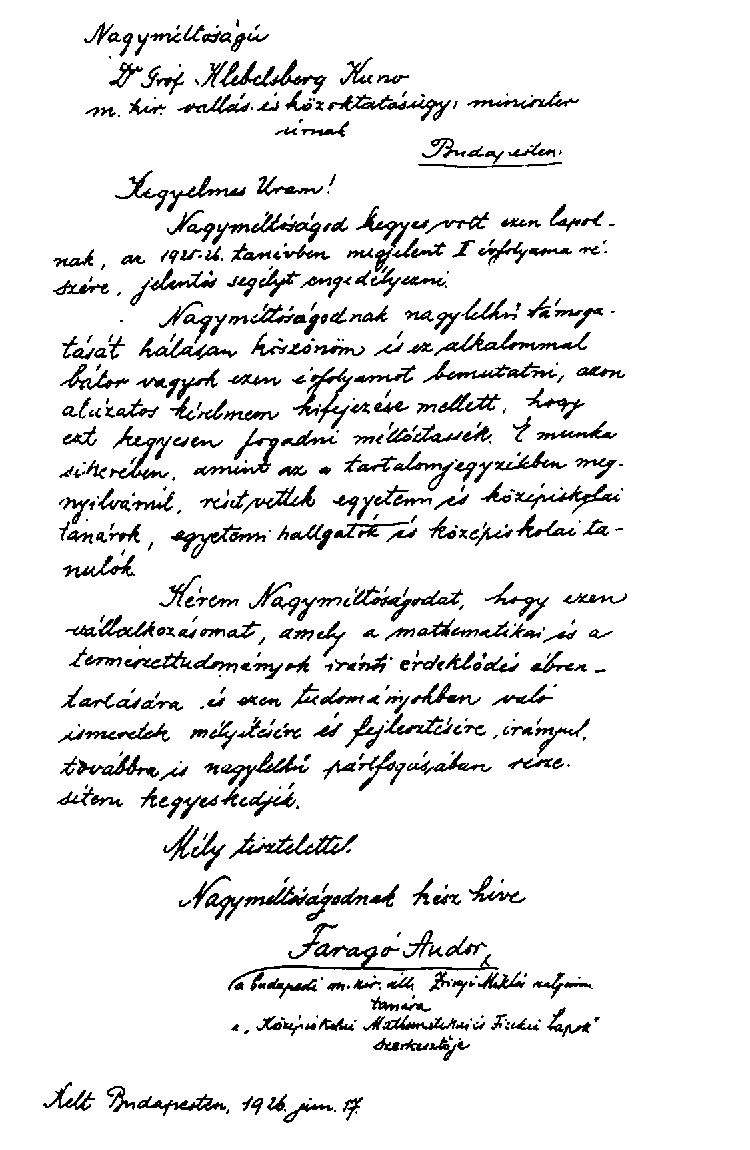 Nagyméltóságú
Dr Gróf Klebelsberg Kuno
m. kir. vallás és közoktatásügyi miniszter
úrnak
Budapesten.
Kegyelmes Uram!
Nagyméltóságod kegyes volt ezen lapok-
nak, az 1925-26. tanévben megjelent I évfolyama ré-
szére, jelentős segélyt engedélyezni.
Nagyméltóságodnak nagylelkű támoga-
tását hálásan köszönöm és ez alkalommal
bátor vagyok ezen évfolyamot bemutatni, azon
alázatos kérelmem kifejezése mellett, hogy
ezt kegyesen fogadni méltóztassék. E munka
sikerében, amint az a tartalomjegyzékben meg-
nyilvánul, részt vettek egyetemi és középiskolai
tanárok, egyetemi hallgatók és középiskolai ta-
nulók.
Kérem Nagyméltóságodat, hogy ezen
vállalkozásomat, amely a mathematikai és a
természettudományok iránti érdeklődés ébren-
tartására és ezen tudományokban való
ismeretek mélyítésére és fejlesztésére irányul,
továbbra is nagylelkű pártfogásában része-
síteni kegyeskedjék.
Mély tisztelettel.
Nagyméltóságodnak kész híve
Faragó Andor,
a budapesti m. kir. áll. Zrínyi Miklós realgimn.
tanára
a „Középiskolai Mathematikai és Fizikai Lapok"
szerkesztője
Kelt Budapesten, 1926. jún. 17.